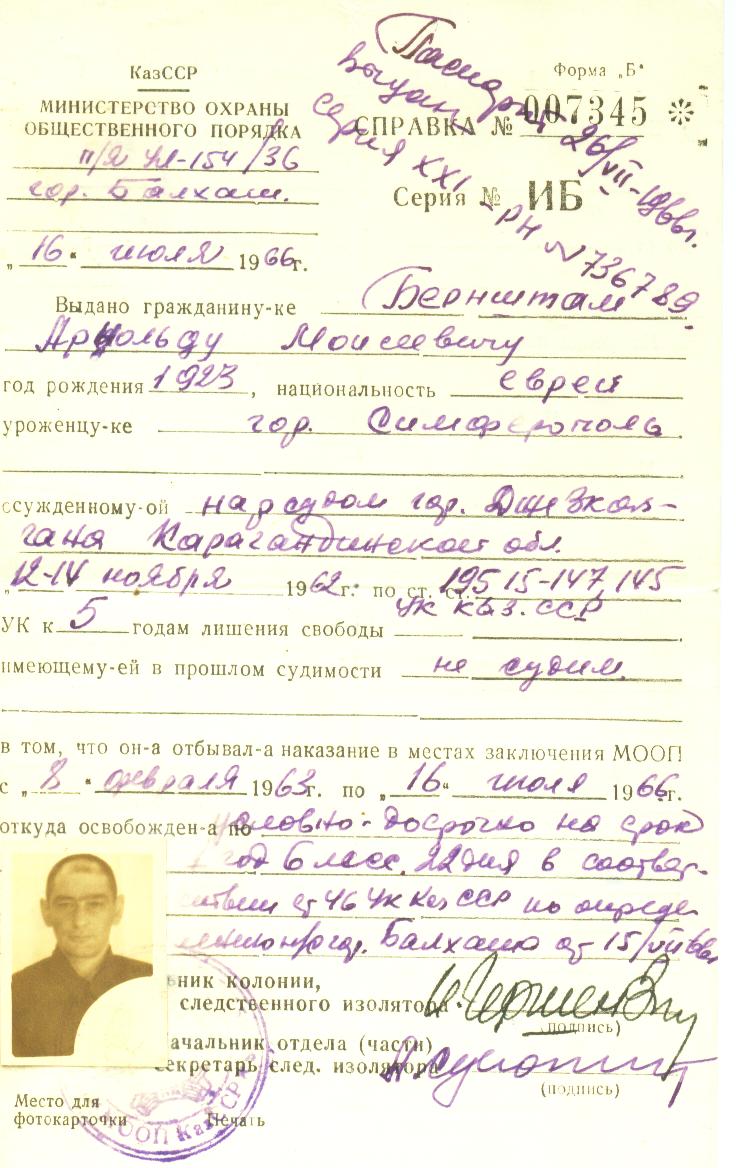 КазССР
МИНИСТЕРСТВО ОХРАНЫ
ОБЩЕСТВЕННОГО ПОРЯДКА
п/я УЛ-154/36
гор. Балхаш.
„16" июля 1966г.
Форма „Б"
СПРАВКА № 007345
Серия № ИБ
Паспорт
выдан 26/VII-1966г.
серия XXI-РН N 736789
Выдано гражданину-ке Бернштам
Арнольду Моисеевичу
год рождения 1923, национальность еврей
уроженцу-ке гор. Симферополь
ссужденному-ой нарсудом гор. Джезказ-
гана Карагандинской обл.
„12-14 ноября 1962г. по ст. ст. 195 15-147, 145
УК Каз. ССР
УК к 5 годам лишения свободы
имеющему-ей в прошлом судимости не судим
в том, что он-а отбывал-а наказание в местах заключения МООП
с „8" февраля 1963г. по „16" июля 1966г.
откуда освобожден-а по условно-досрочно на срок
1 год 6 месс. 22 дня в соответ-
ствии ст 46 УК Каз ССР по опреде
гор. Балхаш от 15/VII 66г
ьник колонии,
следственного изолятора
(подпись)
Начальник отдела (части)
секретарь след. изолятора
(подпись)
Место для
фотокарточки
Печать
МООП КазССР